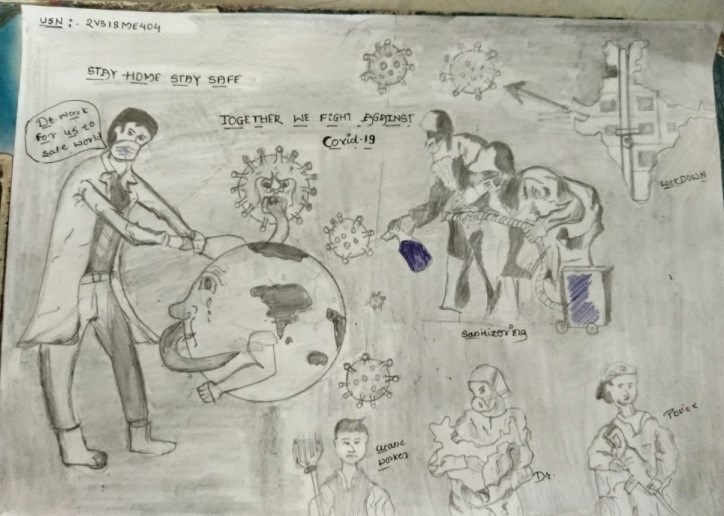 USN :- 2VS18ME404
STAY HOME STAY SAFE
Dt work
for us to
safe world
TOGETHER WE FIGHT AGAINST
Covid-19
LOCKDOWN
Sanitizering
Cleane
worker
Dt.
Police